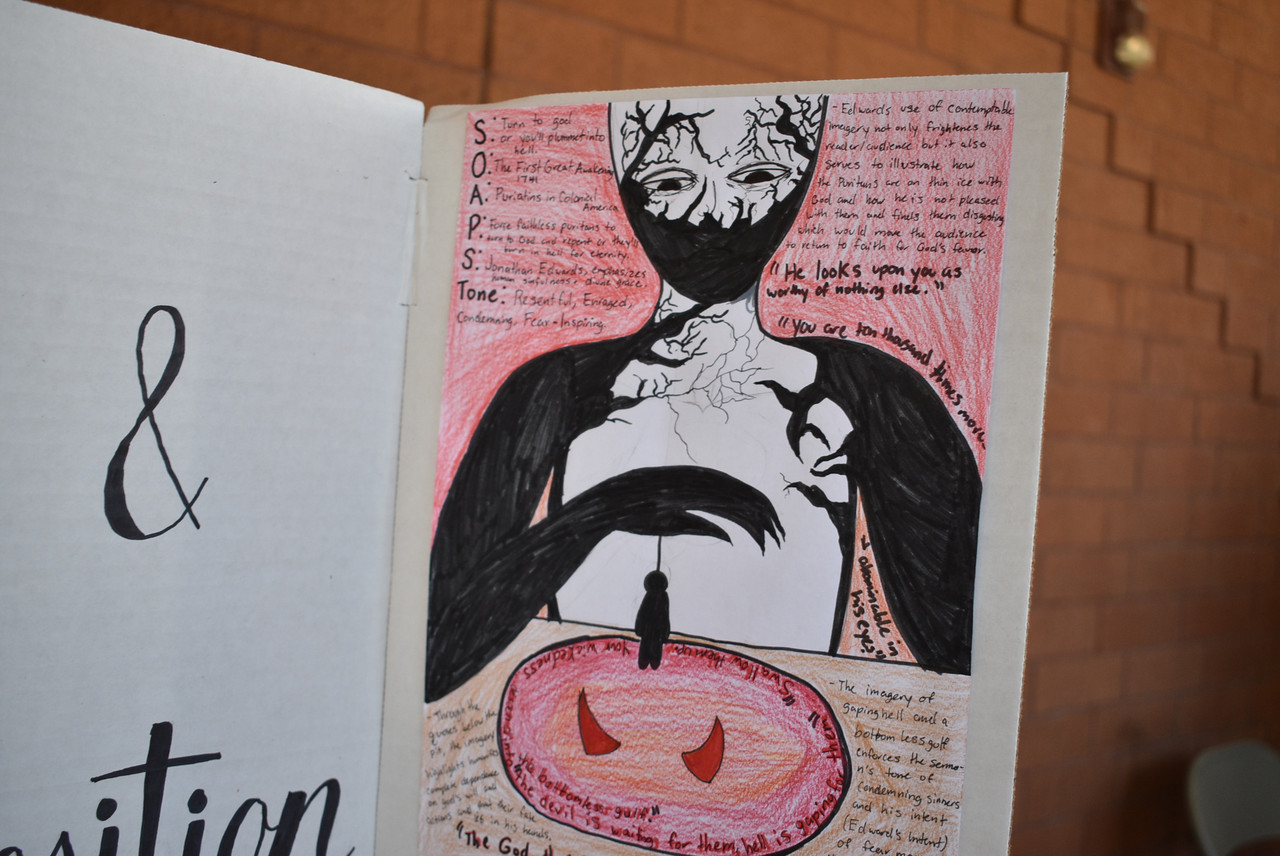 &
sition
S: Turn to god
or you'll plummet into
hell.
O: The First Great Awakening
1741
A: Puritatins in Colonial
America
P: Force faithless puritans to
turn to God and repent or they'll
burn in hell for eternity.
S: Jonathan Edwards, emphasizes
human sinfulness + divine grace.
Tone: Resentful, Enraged,
Condemning, Fear-Inspiring
- Edwards use of contemptable
imagery not only frightenes the
reader/audience but it also
serves to illustrate how
the Puritans are on thin ice with
God and how he is not pleased
with them and finds them disgusting
which would move the audience
to return to faith for God's favor.
"He looks upon you as
worthy of nothing else."
"you are ten thousand times more
abominable in
his eyes"
"Swallow them up"
your wickedness
the devil is waiting for them, hell is gaping for
them"
the bottomless gulf."
- Through the
the imagery
highlights
in his hands.
"The God
- The imagery of
gaping hell and a
bottomless gulf
enforces the sermo-
n's tone of
Condemning sinners
and his intent
(Edward's Intent)
of fear